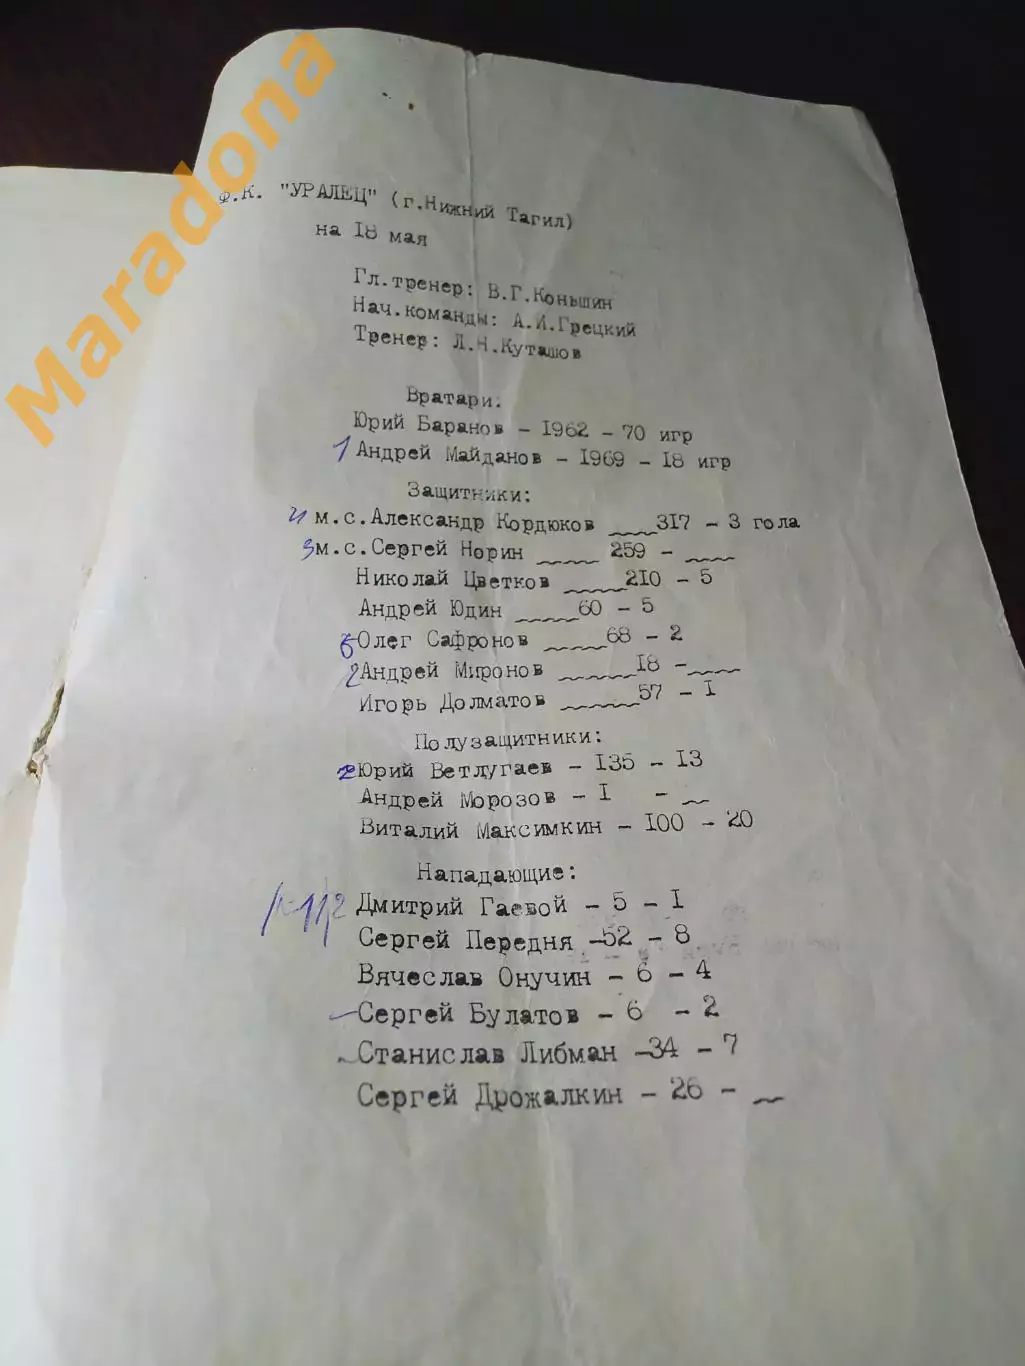 Maradona
Ф.К. "УРАЛЕЦ" (г.Нижний Тагил)
на 18 мая
Гл.тренер: В.Г.Коньшин
Нач.команды: А.И.Грецкий
Тренер: Л.Н.Куташов
Вратари:
Юрий Баранов - 1962 - 70 игр
1 Андрей Майданов - 1969 - 18 игр
Защитники:
м.с.Александр Кордюков ____317 - 3 гола
3 м.с.Сергей Норин ____ 259 - ____
Николай Цветков ____210 - 5
Андрей Юдин ____60 - 5
Олег Сафронов ____68 - 2
2 Андрей Миронов ____18 - ____
Игорь Долматов ____57 - 1
Полузащитники:
2 Юрий Ветлугаев - 135 - 13
Андрей Морозов - 1 - __
Виталий Максимкин - 100 - 20
Нападающие:
Дмитрий Гаевой - 5 - 1
Сергей Передня -52 - 8
Вячеслав Онучин - 6 - 4
Сергей Булатов - 6 - 2
Станислав Либман -34 - 7
Сергей Дрожалкин - 26 - __